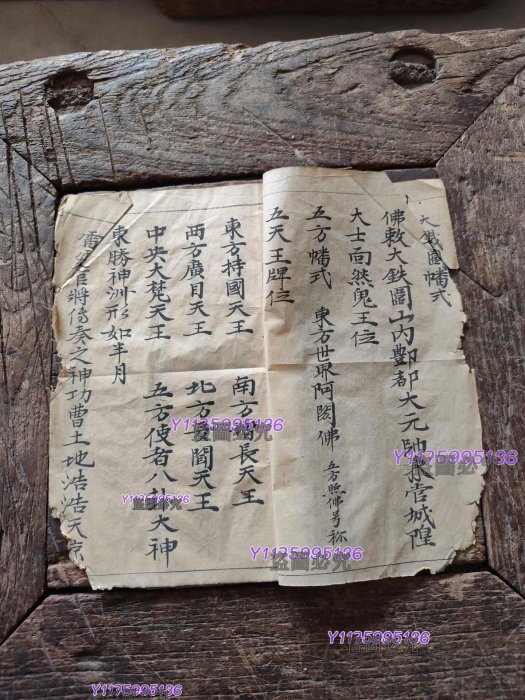 大鐵圍幡式
佛敕大鉄圍山内酆都大元帥衆管城隍
大士向然鬼王位
五方幡式 東方世界阿閦佛 五方照佛号称
五天王牌位
東方持國天王 南方增長天王
西方廣目天王 北方多聞天王
中央大梵天王 五方使者八 大神
東勝神洲形如半月
官將傳奏之神功曹土地浩浩天京
Y1175995136
Y1175995136
Y1175995136
Y1175995136
Y1175995136
Y1175995136
盜圖必究
盜圖必究
盜圖必究